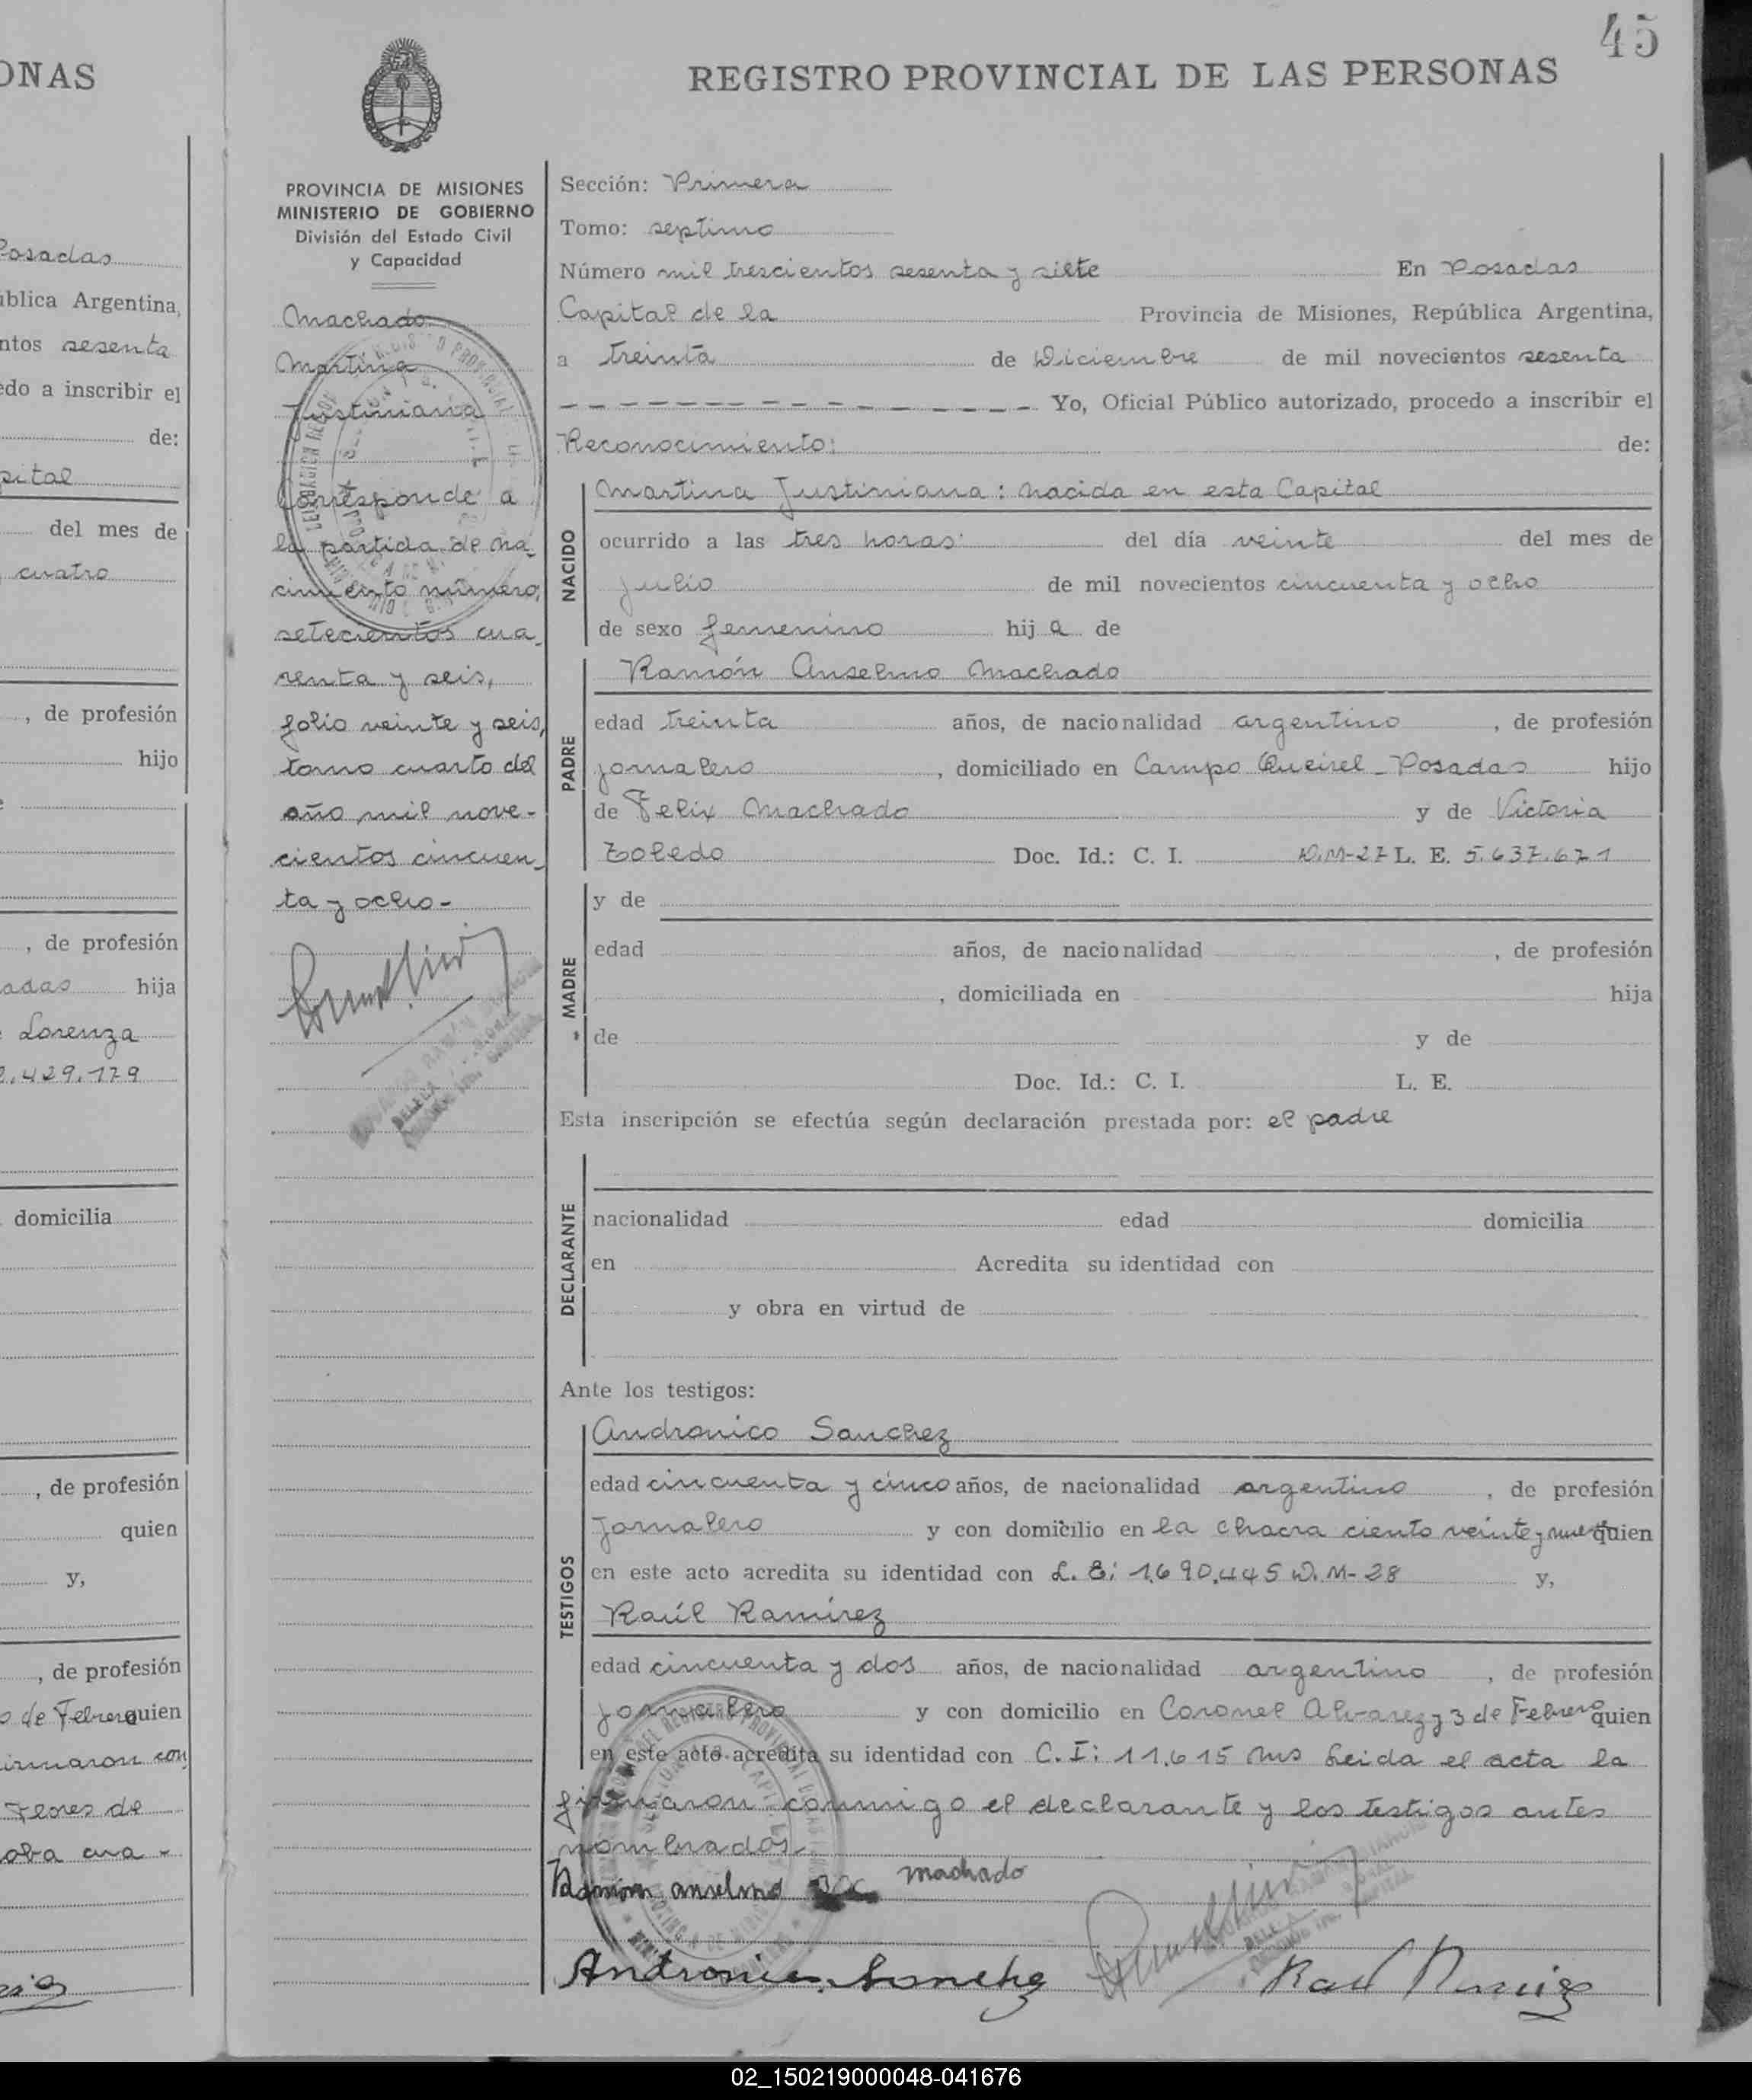 ONAS
Posadas
ública Argentina,
ntos sesenta
edo a inscribir el
de:
pital
del mes de
cuatro
, de profesión
hijo
, de profesión
adas hija
Lorenza
2.429.179
domicilia
, de profesión
quien
y,
, de profesión
o de Febrero quien
irmaron con
Flores de
oba cua -
45
REGISTRO PROVINCIAL DE LAS PERSONAS
PROVINCIA DE MISIONES
MINISTERIO DE GOBIERNO
División del Estado Civil
y Capacidad
Machado
Martina
Justiniana
Corresponde a
la partida de na-
cimiento número,
setecientos cua-
renta y seis,
folio veinte y seis,
tomo cuarto del
año mil nove-
cientos cincuen-
ta y ocho-
Sección: Primera
Tomo: septimo
Número mil trescientos sesenta y siete En Posadas
Capital de la Provincia de Misiones, República Argentina,
a treinta de Diciembre de mil novecientos sesenta
Yo, Oficial Público autorizado, procedo a inscribir el
Reconocimiento: de:
NACIDO
Martina Justiniana: nacida en esta Capital
ocurrido a las tres horas del día veinte del mes de
julio de mil novecientos cincuenta y ocho
de sexo femenino hij a de
PADRE
Ramón Anselmo Machado
edad treinta años, de nacionalidad argentino , de profesión
jornalero , domiciliado en Campo Queirel - Posadas hijo
de Felix Machado y de Victoria
Toledo Doc. Id.: C. I. D.M-27 L. E. 5.637.671
MADRE
y de
edad años, de nacionalidad , de profesión
, domiciliada en hija
de y de
Doc. Id.: C. I. L. E.
Esta inscripción se efectúa según declaración prestada por: el padre
DECLARANTE
nacionalidad edad domicilia
en Acredita su identidad con
y obra en virtud de
Ante los testigos:
TESTIGOS
Andronico Sanchez
edad cincuenta y cinco años, de nacionalidad argentino , de profesión
Jornalero y con domicilio en la chacra ciento veinte y nueve quien
en este acto acredita su identidad con L. E: 1.690.445 D.M-28 y,
Raúl Ramírez
edad cincuenta y dos años, de nacionalidad argentino , de profesión
jornalero y con domicilio en Coronel Alvarez y 3 de Febrero quien
en este acto acredita su identidad con C.I: 11.615 Mns Leida el acta la
firmaron conmigo el declarante y los testigos antes
nombrados.
Ramon anselmo machado
Andronico Sanchez
Raul Ramirez
02_150219000048-041676